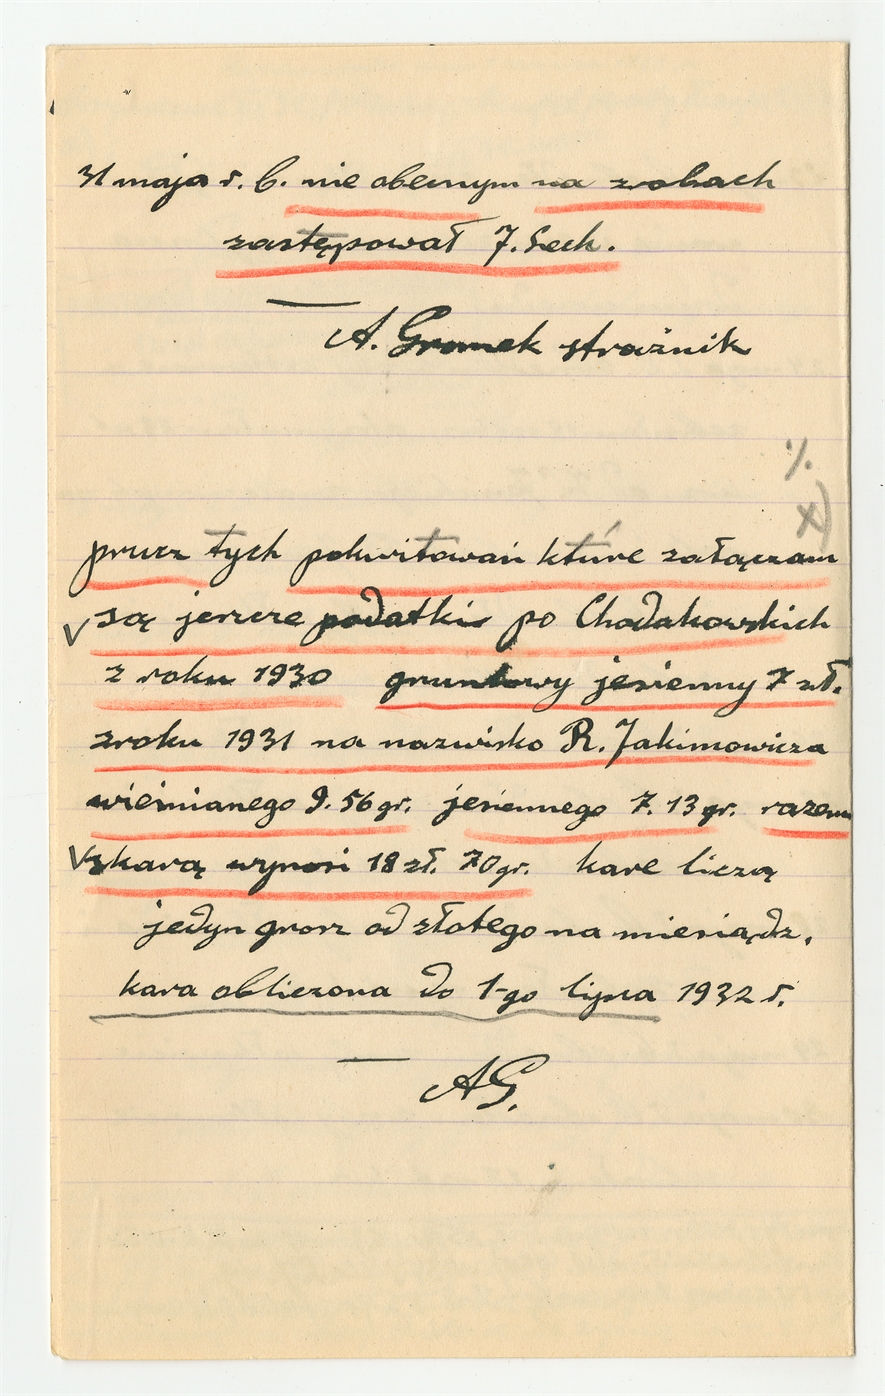 31 maja r. b. nie obecnym na zrobach
zastępował J. Lech.
A. Gromek strażnik
%.
x)
prucz tych pokwitowań które załączam
V są jeszcze podatki po Chodakowskich
z roku 1930 gruntowy jesienny 7 zł.
zroku 1931 na nazwisko R. Jakimowicza
wieśnianego 9.56 gr. jesiennego 7.13 gr. razem
V zkarą wynosi 18 zł. 70 gr. kare liczą
jedyn grosz od złotego na miesiądz,
kara obliczona do 1-go lipca 1932 r.
AG.